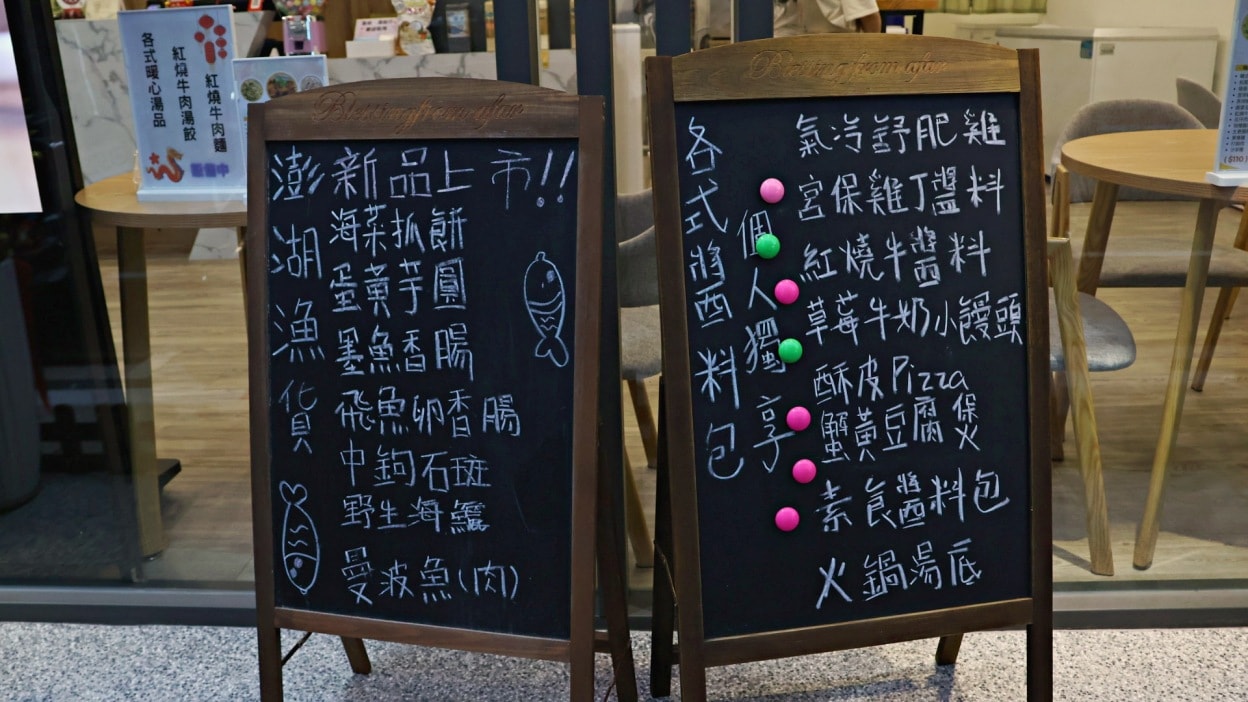 紅燒牛肉麵
紅燒牛肉湯餃
各式暖心湯品
Blessing from after
澎湖漁貨
新品上市!!
海菜抓餅
蛋黃芋圓
墨魚香腸
飛魚卵香腸
中鉤石斑
野生海鱺
曼波魚(肉)
各式醬料包
個人獨享
氣冷舒肥雞
宮保雞丁醬料
紅燒牛醬料
草莓牛奶小饅頭
酥皮Pizza
蟹黃豆腐煲
素食醬料包
火鍋湯底